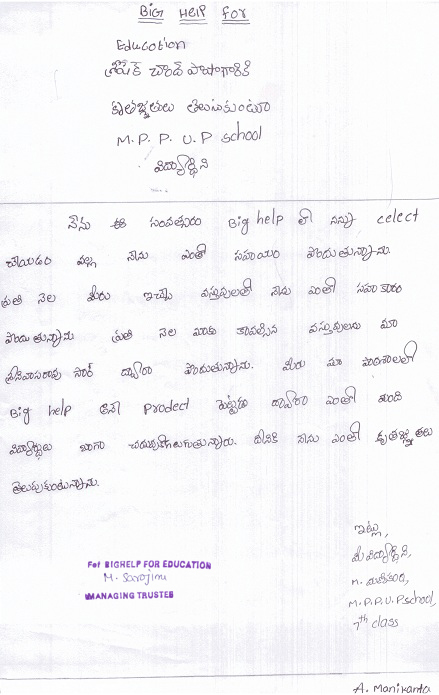 BIG HELP FOR
Education
చాంద్ పాషాగారికి
కృతజ్ఞతలు తెలుపుకుంటూ
M.P.P.U.P school
విద్యార్థిని
నేను ఈ సంవత్సరం Big help లో నన్ను celect
చేయడం వల్ల నేను ఎంతో సహాయం పొందుతున్నాను.
ప్రతి నెల మీరు ఇచ్చే వస్తువులతో నేను ఎంతో సహకారం
పొందుతున్నాను ప్రతి నెల మాకు కావల్సిన వస్తువులను మా
శ్రీనివాసరావు సార్ ద్వారా పొందుతున్నాను. మీరు మా పాఠశాలలో
Big help అనే Prodect పెట్టడం ద్వారా ఎంతో మంది
విద్యార్థులు బాగా చదువుకోగలుగుతున్నారు. దీనికి నేను ఎంతో కృతజ్ఞతలు
తెలుపుకుంటున్నాను.
ఇట్లు,
మీ విద్యార్థిని,
M.P.P.U.P school,
7th class
For BIGHELP FOR EDUCATION
M. Sarojini
MANAGING TRUSTEE
A. Manikanta